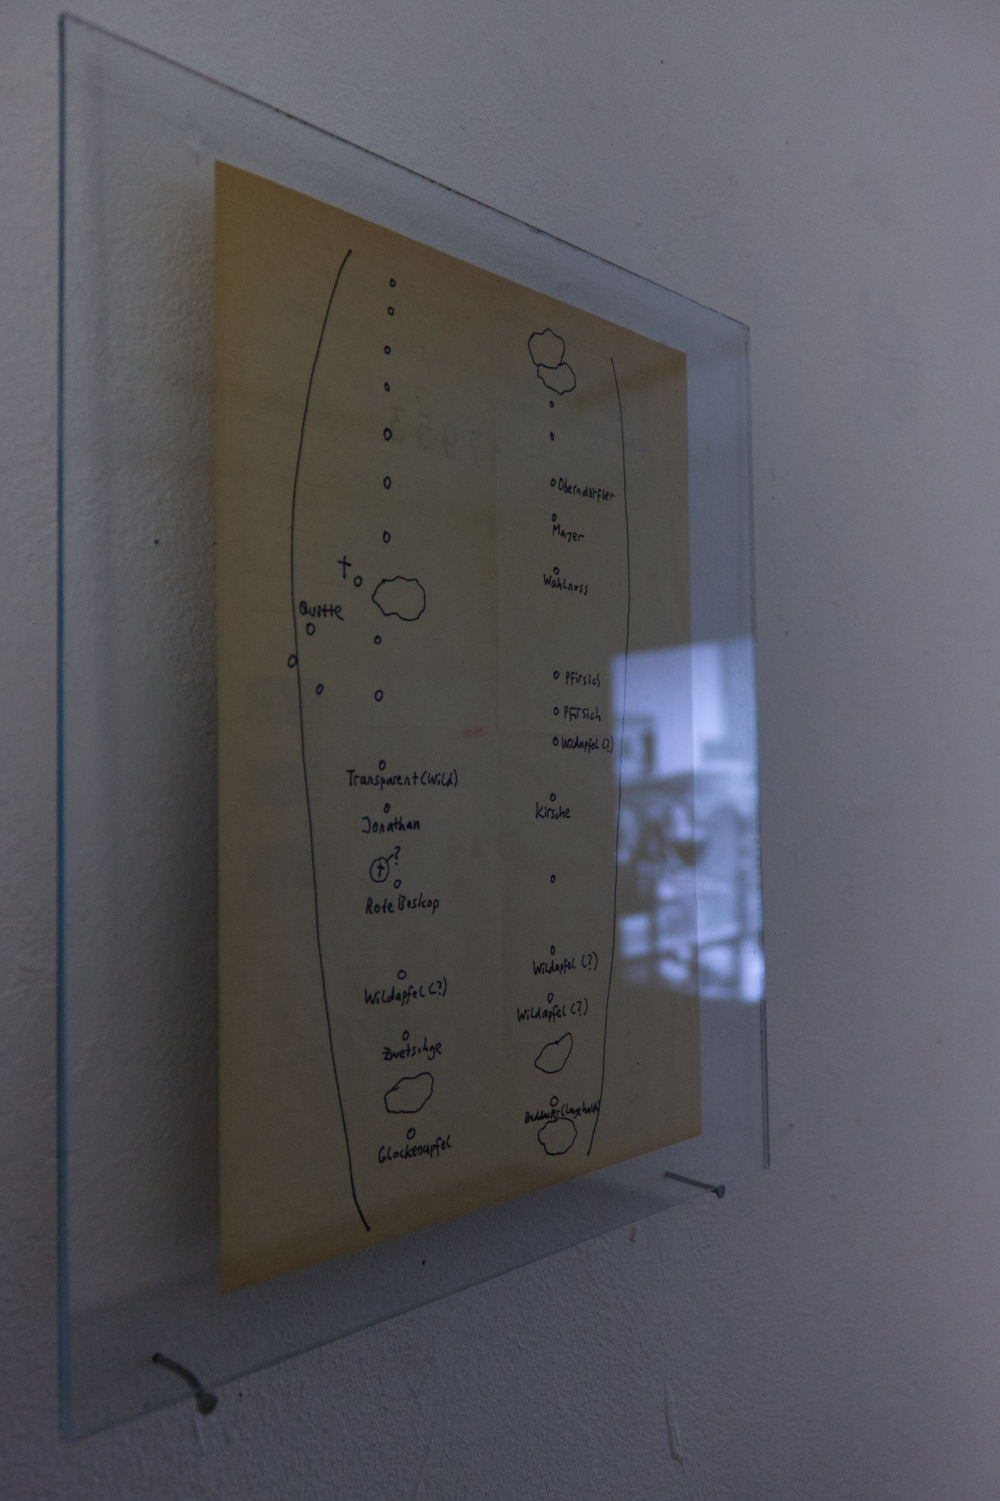 17953
Oberndörfler
Mayer
Wahlnuss
†
Quitte
Pfirsich
Pfirsich
Wildapfel (?)
Transparent (Wild)
Jonathan
Kirsche
† ?
Rote Boskop
Wildapfel (?)
Wildapfel (?)
Wildapfel (?)
Zwetschge
Glockenapfel